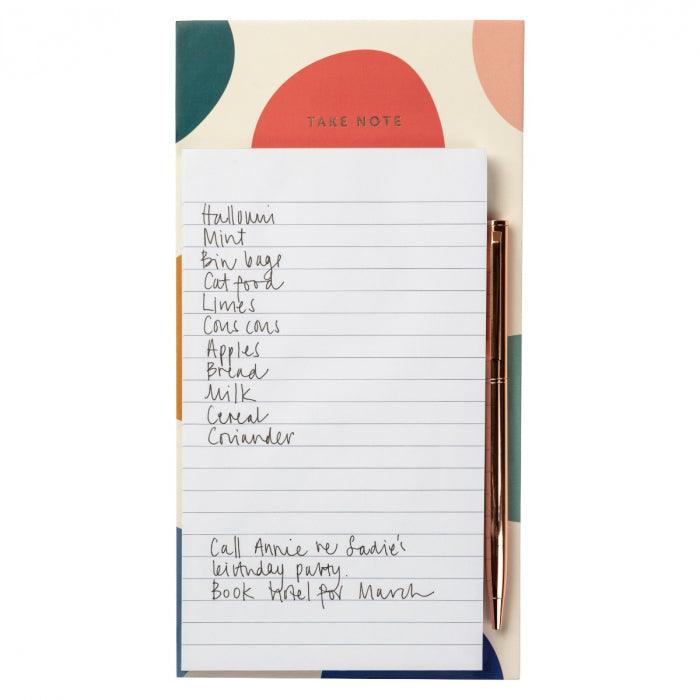 TAKE NOTE
Halloumi
Mint
Bin bags
Cat food
Limes
Cous cous
Apples
Bread
Milk
Cereal
Coriander
Call Annie re Sadie's
birthday party.
Book hotel for March